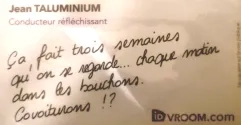 Jean TALUMINIUM
Conducteur réfléchissant
Ça, fait trois semaines
qui on se regarde... chaque matin
dans les bouchons.
Covoiturons !?
iDVROOM.com